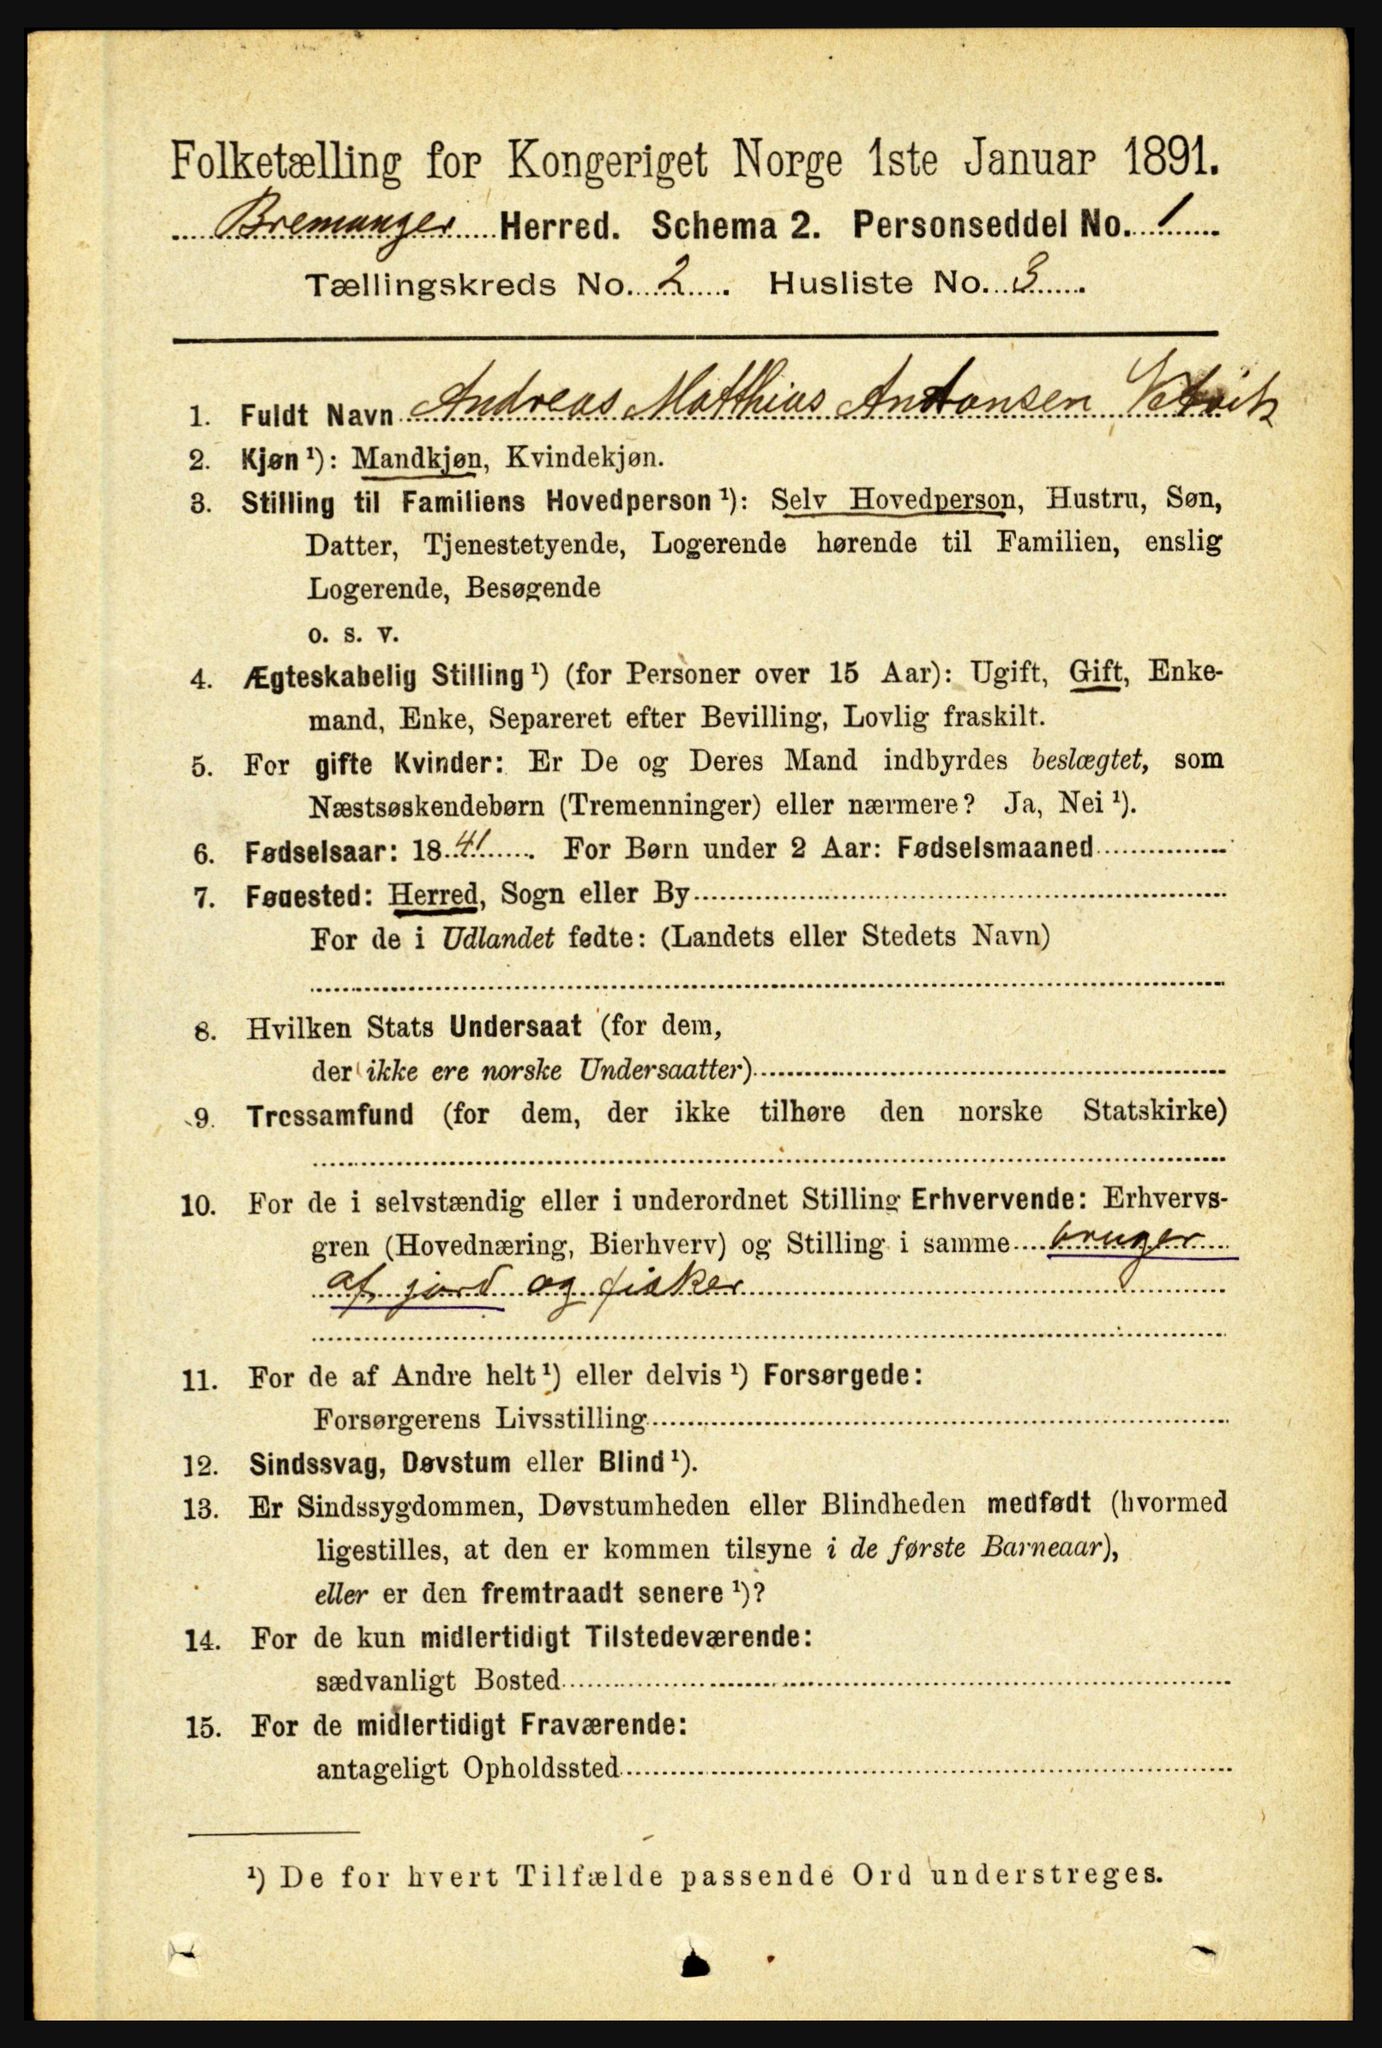 Folketælling for Kongeriget Norge 1ste Januar 1891.
Bremanger Herred. Schema 2. Personseddel No. 1
Tællingskreds No. 2. Husliste No. 3.
1. Fuldt Navn Andreas Matthias Antonsen
2. Kjøn ¹): Mandkjøn, Kvindekjøn.
3. Stilling til Familiens Hovedperson ¹): Selv Hovedperson, Hustru, Søn,
Datter, Tjenestetyende, Logerende hørende til Familien, enslig
Logerende, Besøgende
o. s. v.
4. Ægteskabelig Stilling ¹) (for Personer over 15 Aar): Ugift, Gift, Enke-
mand, Enke, Separeret efter Bevilling, Lovlig fraskilt.
5. For gifte Kvinder: Er De og Deres Mand indbyrdes beslægtet, som
Næstsøskendebørn (Tremenninger) eller nærmere? Ja, Nei ¹).
6. Fødselsaar: 1841. For Børn under 2 Aar: Fødselsmaaned
7. Føuested: Herred, Sogn eller By
For de i Udlandet fødte: (Landets eller Stedets Navn)
8. Hvilken Stats Undersaat (for dem,
der ikke ere norske Undersaatter)
9. Trcssamfund (for dem, der ikke tilhøre den norske Statskirke)
10. For de i selvstændig eller i underordnet Stilling Erhvervende: Erhvervs-
gren (Hovednæring, Bierhverv) og Stilling i samme bruger
af jord og fisker
11. For de af Andre helt ¹) eller delvis ¹) Forsørgede:
Forsørgerens Livsstilling
12. Sindssvag, Døvstum eller Blind ¹).
13. Er Sindssygdommen, Døvstumheden eller Blindheden medfødt (hvormed
ligestilles, at den er kommen tilsyne i de første Barneaar),
eller er den fremtraadt senere ¹)?
14. For de kun midlertidigt Tilstedeværende:
sædvanligt Bosted
15. For de midlertidigt Fraværende:
antageligt Opholdssted
¹) De for hvert Tilfælde passende Ord understreges.